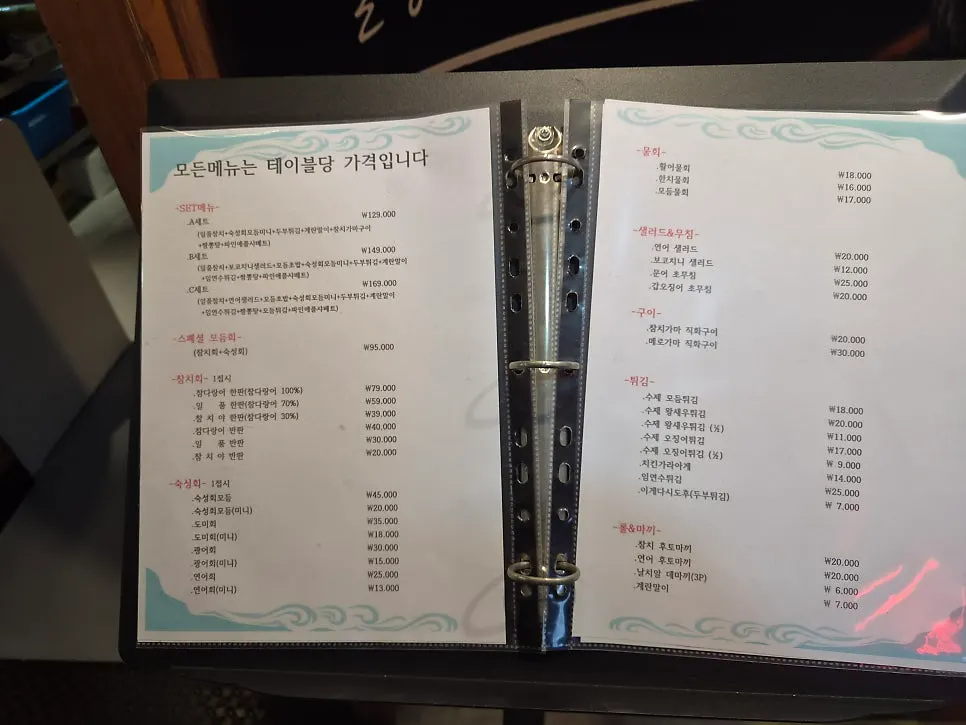 모든메뉴는 테이블당 가격입니다
-SET메뉴-
.A세트 ₩129.000
(일품참치+숙성회모듬미니+두부튀김+계란말이+참치가마구이
+짬뽕탕+파인애플샤베트)
.B세트 ₩149.000
(일품참치+보코치니샐러드+모듬초밥+숙성회모듬미니+두부튀김+계란말이
+임연수튀김+짬뽕탕+파인애플샤베트)
.C세트 ₩169.000
(일품참치+연어샐러드+모듬초밥+숙성회모듬미니+두부튀김+계란말이
+임연수튀김+짬뽕탕+모듬튀김+파인애플샤베트)
-스페셜 모듬회-
(참치회+숙성회) ₩95.000
-참치회- 1접시
.참다랑어 한판(참다랑어 100%) ₩79.000
.일 품 한판(참다랑어 70%) ₩59.000
.참 치 야 한판(참다랑어 30%) ₩39.000
.참다랑어 반판 ₩40.000
.일 품 반판 ₩30.000
.참 치 야 반판 ₩20.000
-숙성회- 1접시
.숙성회모듬 ₩45.000
.숙성회모듬(미니) ₩20.000
.도미회 ₩35.000
.도미회(미니) ₩18.000
.광어회 ₩30.000
.광어회(미니) ₩15.000
.연어회 ₩25.000
.연어회(미니) ₩13.000
-물회-
.활어물회 ₩18.000
.한치물회 ₩16.000
.모듬물회 ₩17.000
-샐러드&무침-
.연어 샐러드 ₩20.000
.보코치니 샐러드 ₩12.000
.문어 초무침 ₩25.000
.갑오징어 초무침 ₩20.000
-구이-
.참치가마 직화구이 ₩20.000
.메로가마 직화구이 ₩30.000
-튀김-
.수제 모듬튀김 ₩18.000
.수제 왕새우튀김 ₩20.000
.수제 왕새우튀김 (½) ₩11.000
.수제 오징어튀김 ₩17.000
.수제 오징어튀김 (½) ₩ 9.000
.치킨가라아게 ₩14.000
.임연수튀김 ₩25.000
.이게다시도후(두부튀김) ₩ 7.000
-롤&마끼-
.참치 후토마끼 ₩20.000
.연어 후토마끼 ₩20.000
.날치알 데마끼(3P) ₩ 6.000
.계란말이 ₩ 7.000